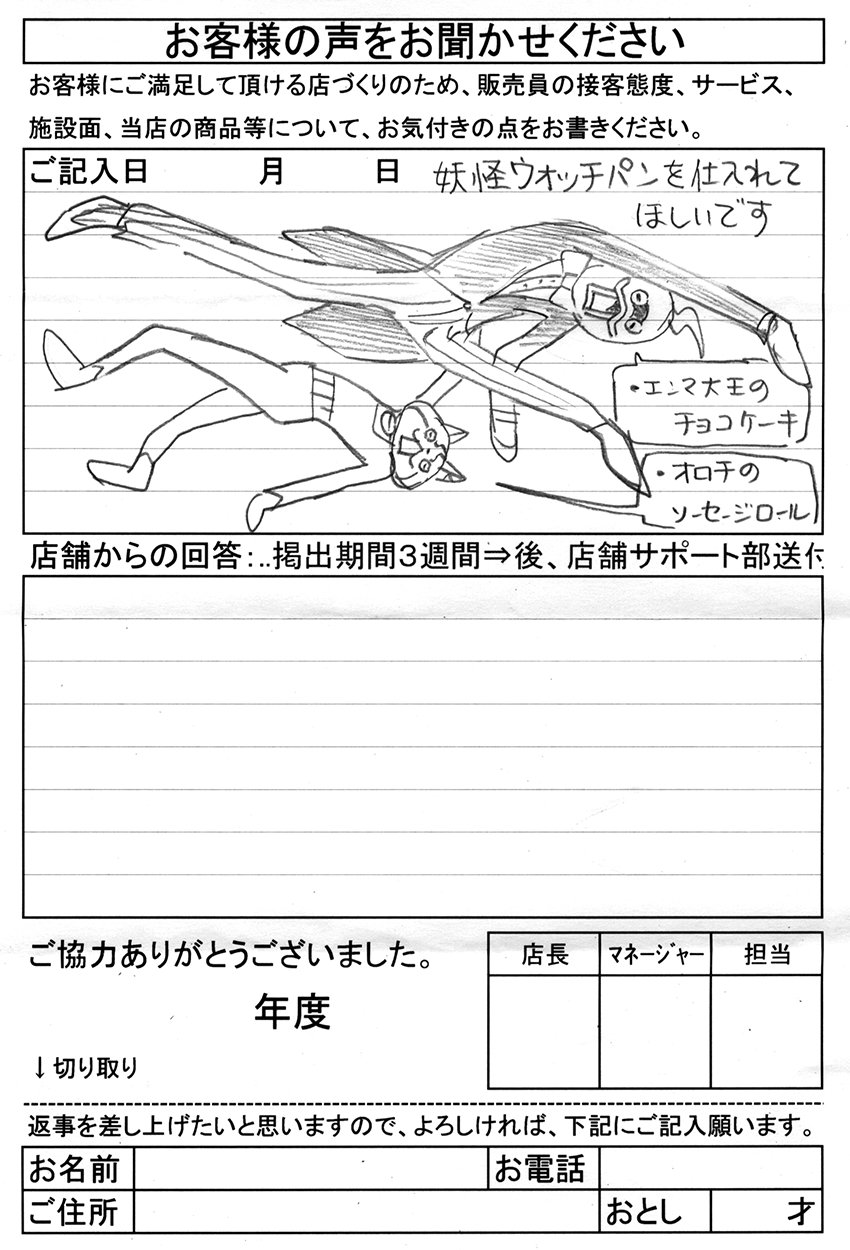 お客様の声をお聞かせください
お客様にご満足して頂ける店づくりのため、販売員の接客態度、サービス、
施設面、当店の商品等について、お気付きの点をお書きください。
ご記入日 月 日
妖怪ウォッチパンを仕入れて
ほしいです
・エンマ大王の
チョコケーキ
・オロチの
ソーセージロール
店舗からの回答:..掲出期間３週間⇒後、店舗サポート部送付
ご協力ありがとうございました。
年度
店長 マネージャー 担当
↓切り取り
返事を差し上げたいと思いますので、よろしければ、下記にご記入願います。
お名前 お電話
ご住所 おとし 才